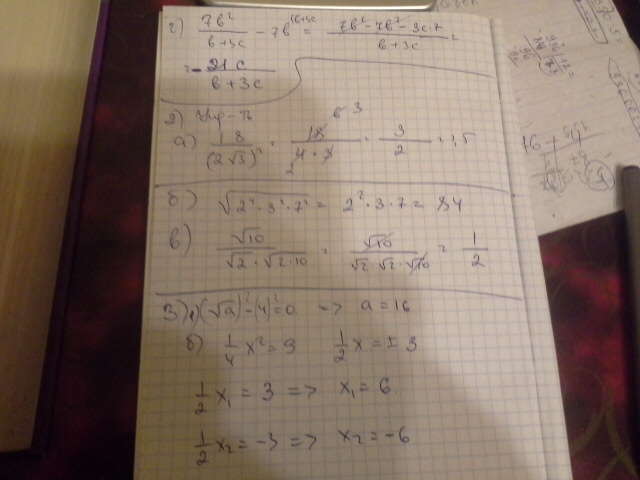 г) 7в²/(в+3с) - 7в^(в+3с) = (7в² - 7в² - 3с·7)/(в+3с) =
= -21с/(в+3с)
2) Упр-ть
а) 18/(2√3)² = 18/(4·3) = 3/2 = 1,5
б) √(2⁴·3²·7²) = 2²·3·7 = 84
в) √10/(√2·√2·10) = √10/(√2·√2·√10) = 1/2
3) а) (√a)² - (4)² = 0 => a = 16
б) 1/4 x² = 9 1/2 x = ±3
1/2 x₁ = 3 => x₁ = 6
1/2 x₂ = -3 => x₂ = -6